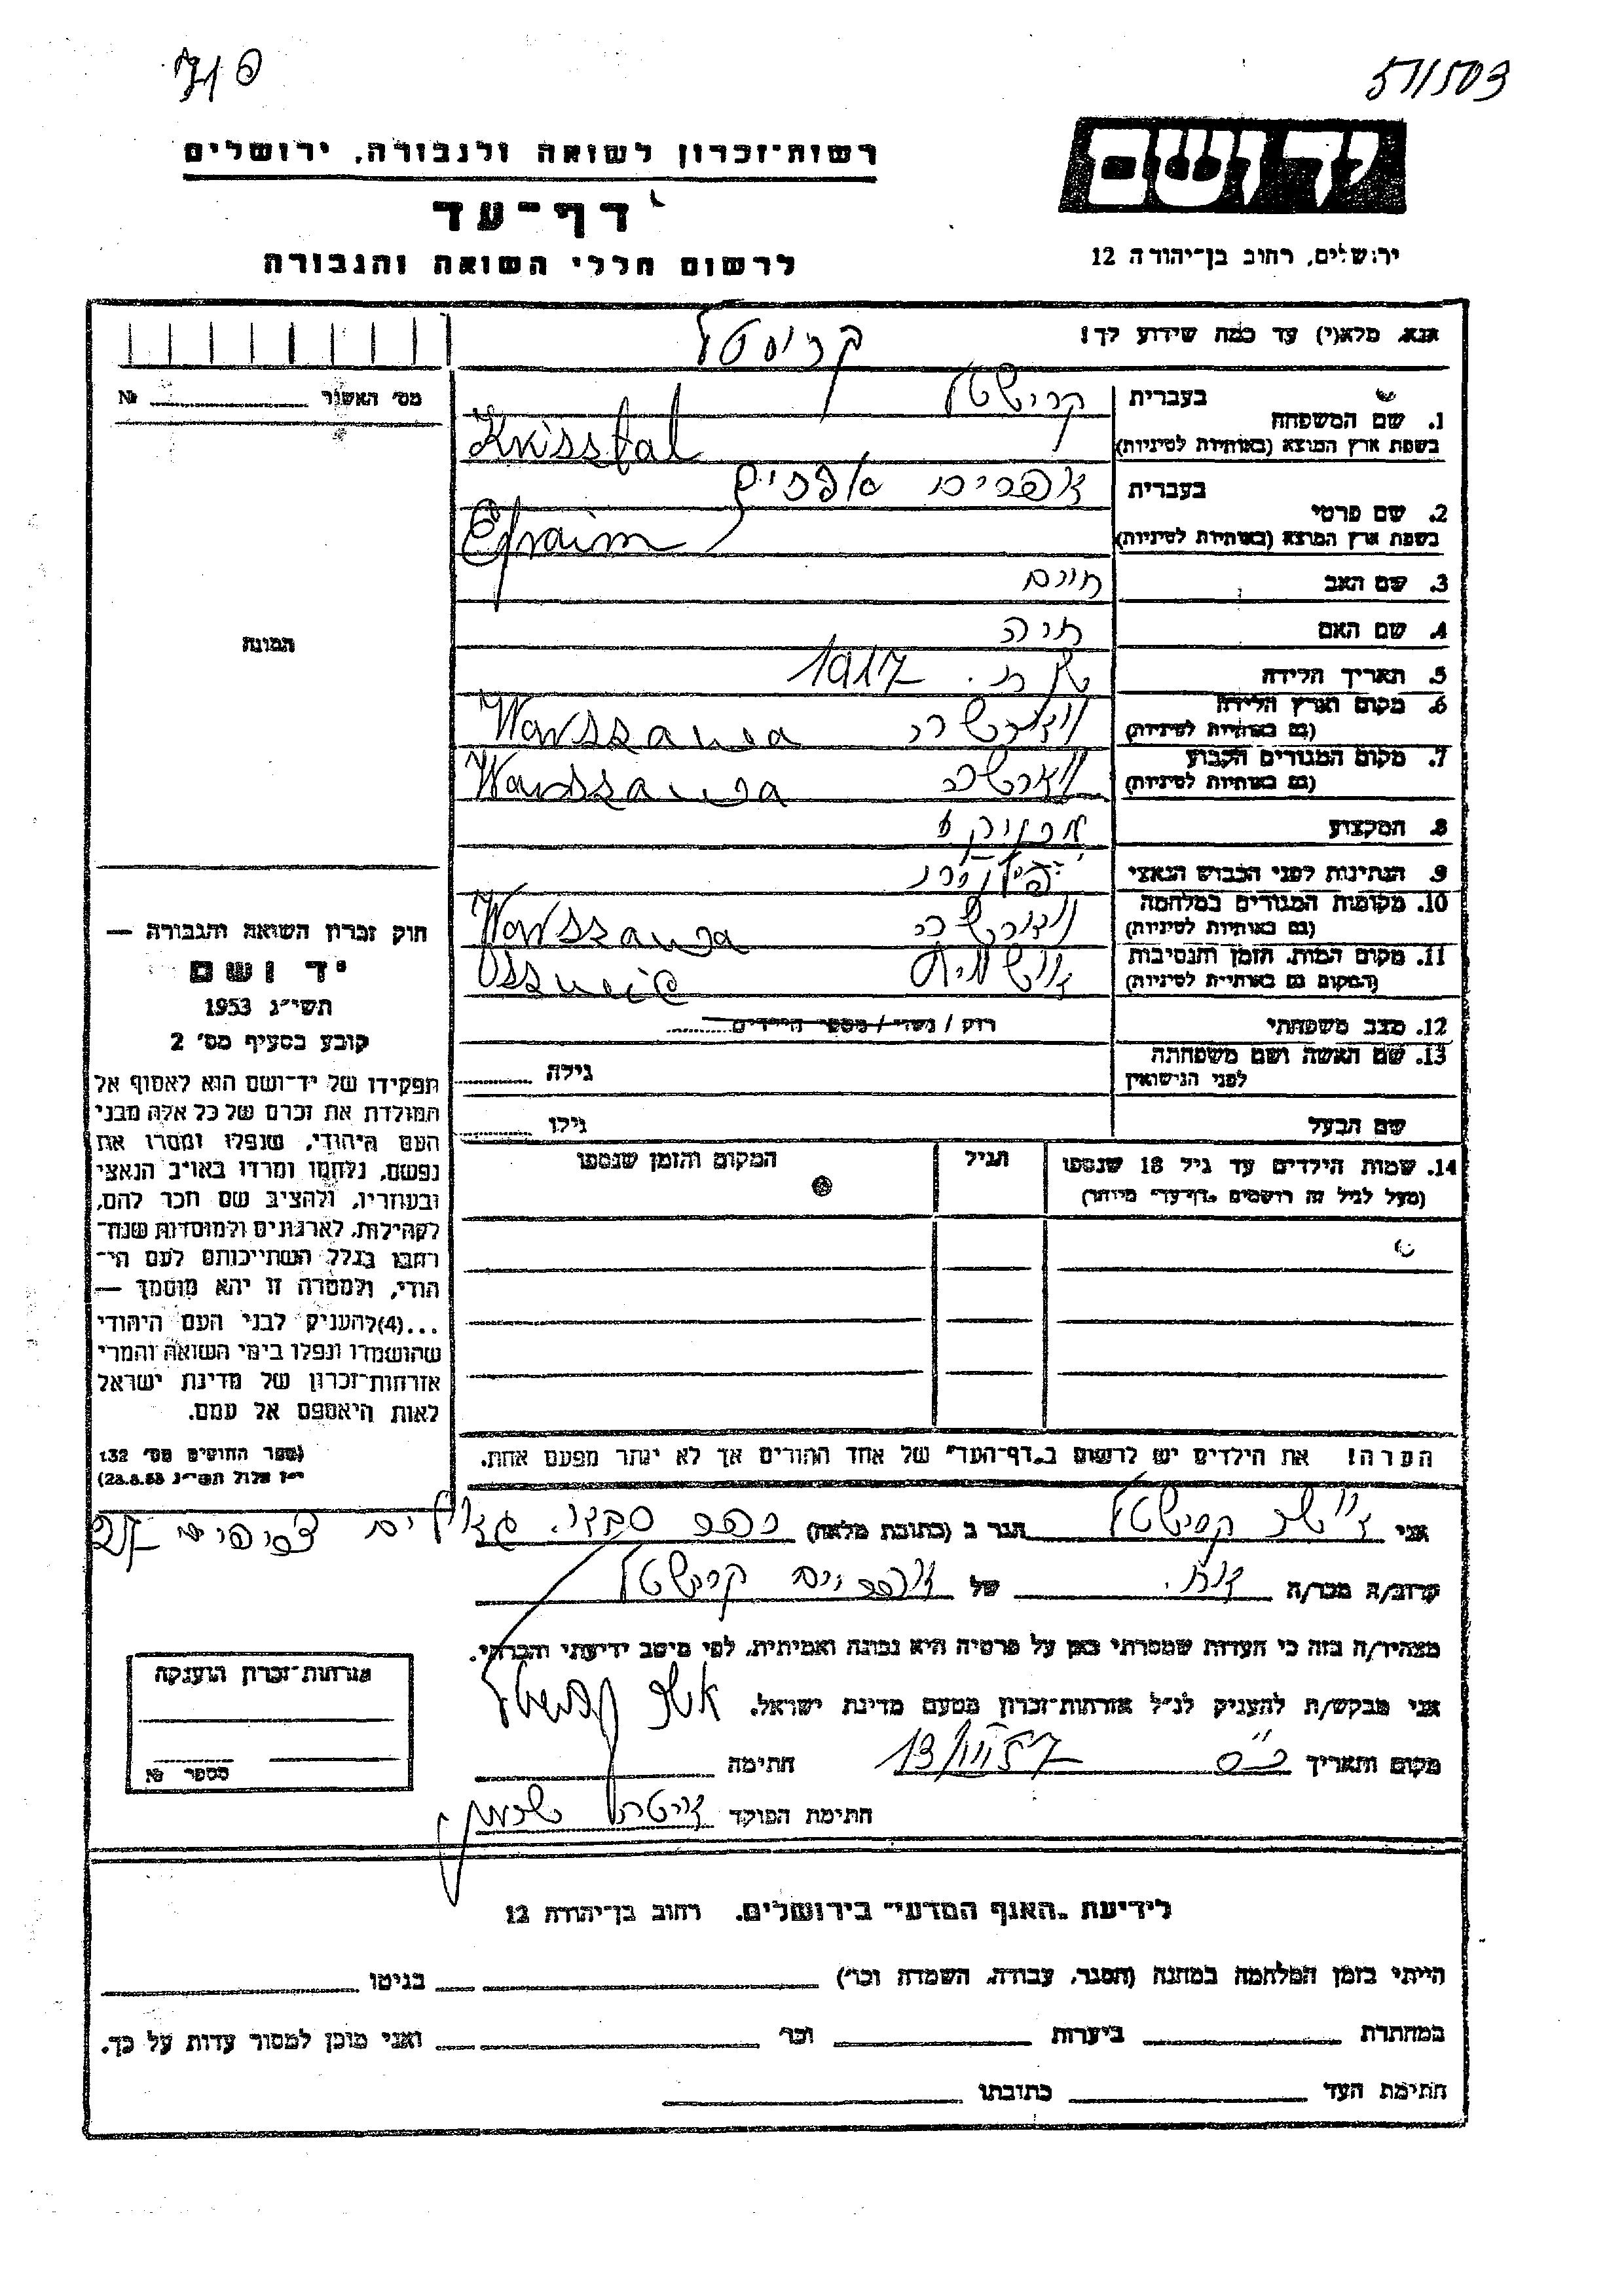 51/503
יד ושם
ירושלים, רחוב בן־יהודה 12
רשות־זכרון לשואה ולגבורה, ירושלים
דף־עד
לרשום חללי השואה והגבורה
אנא, מלא(י) עד כמה שידוע לך!
קריסטל
1. שם המשפחה
בעברית
קרישטל
בשפת ארץ המוצא (באותיות לטיניות)
Krisstal
2. שם פרטי
בעברית
אפרים אפרים
בשפת ארץ המוצא (באותיות לטיניות)
Efraim
3. שם האב
חיים
4. שם האם
חיה
5. תאריך הלידה
1917
6. מקום וארץ הלידה
(גם באותיות לטיניות)
ווארשה Warszawa
7. מקום המגורים הקבוע
(גם באותיות לטיניות)
ווארשה Warszawa
8. המקצוע
9. הנתינות לפני הכבוש הנאצי
10. מקומות המגורים במלחמה
(גם באותיות לטיניות)
ווארשה Warszawa
11. מקום המות, הזמן והנסיבות
(המקום גם באותיות לטיניות)
12. מצב משפחתי
רוק / נשוי / מספר הילדים
13. שם האשה ושם משפחתה
לפני הנישואין
גילה
שם הבעל
גילו
14. שמות הילדים עד גיל 18 שנספו
(מעל לגיל זה רושמים "דף־עד" מיוחד)
הגיל
המקום והזמן שנספו
הערה! את הילדים יש לרשום ב"דף־העד" של אחד ההורים אך לא יותר מפעם אחת.
מס' האשור №
תמונה
חוק זכרון השואה והגבורה —
יד ושם
תשי"ג 1953
קובע בסעיף מס' 2
תפקידו של יד־ושם הוא לאסוף אל
המולדת את זכרם של כל אלה מבני
העם היהודי, שנפלו ומסרו את
נפשם, נלחמו ומרדו באויב הנאצי
ובעוזריו, ולהציב שם וזכר להם,
לקהילות, לארגונים ולמוסדות שנח־
רבו בגלל השתייכותם לעם הי־
הודי, ולמטרה זו יהא מוסמך —
...(4)להעניק לבני העם היהודי
שהושמדו ונפלו בימי השואה והמרי
אזרחות־זכרון של מדינת ישראל
לאות היאספם אל עמם.
(ספר החוקים מס' 132
י"ז אלול תשי"ג 28.8.53)
אני אשר קרישטל הגר ב (כתובת מלאה) כפר סבא
קרוב/ה מכר/ה אח של אפריים קרישטל
מצהיר/ה בזה כי העדות שמסרתי כאן על פרטיה היא נכונה ואמיתית, לפי מיטב ידיעתי והכרתי.
אני מבקש/ת להעניק לנ"ל אזרחות־זכרון מטעם מדינת ישראל.
אשר קרישטל
מקום ותאריך כ"ס 13/VIII 57 חתימה
חתימת הפוקד
אזרחות־זכרון הוענקה
מספר №
לידיעת "האגף המדעי" בירושלים, רחוב בן־יהודה 12
הייתי בזמן המלחמה במחנה (הסגר, עבודה, השמדה וכו') בגיטו
במחתרת ביערות וכו' ואני מוכן למסור עדות על כך.
חתימת העד כתובתו